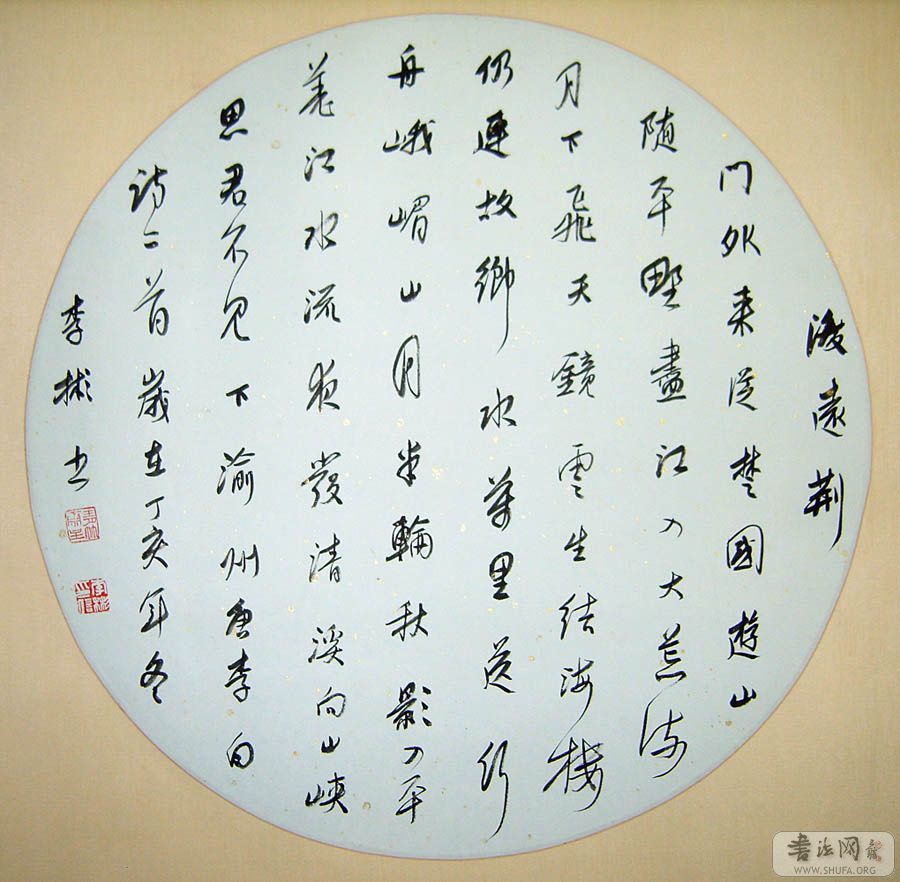 渡遠荊
門外来從楚國遊山
随平野盡江入大荒流
月下飛天鏡雲生结海樓
仍連故鄉水萬里送行
舟峨嵋山月半輪秋影入平
羌江水流夜發清溪向山峡
思君不见下渝州唐李白
诗二首歲在丁亥年冬
李彬书
書法网
WWW.SHUFA.ORG